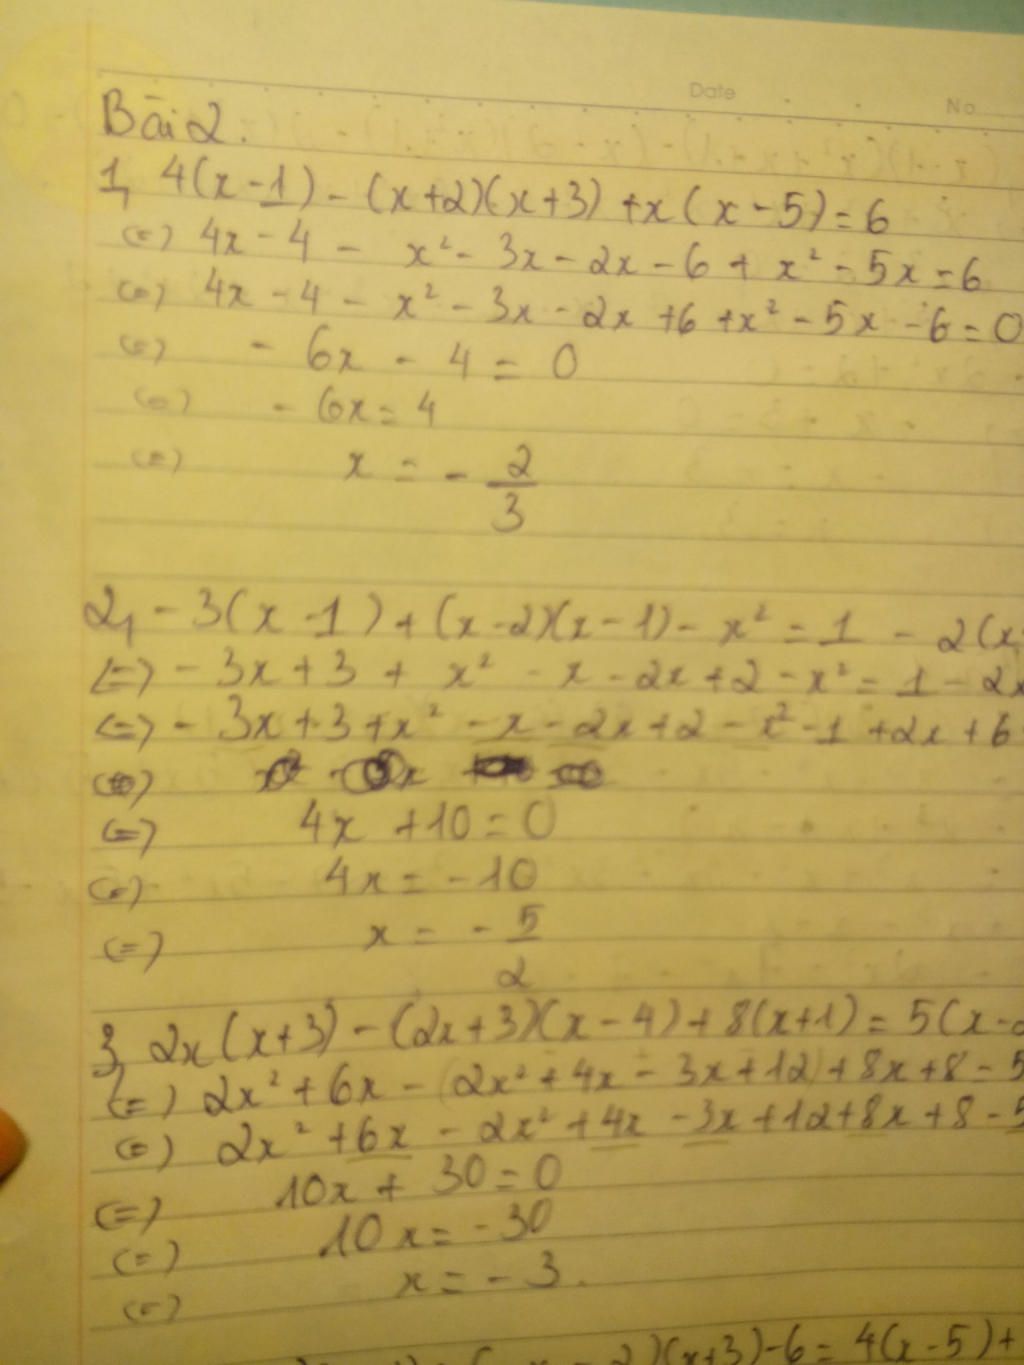 Date No
Bài 2.
1, 4(x-1) - (x+2)(x+3) + x(x-5) = 6
(=) 4x - 4 - x² - 3x - 2x - 6 + x² - 5x = 6
(=) 4x - 4 - x² - 3x - 2x + 6 + x² - 5x - 6 = 0
(=) - 6x - 4 = 0
(=) - 6x = 4
(=) x = - 2/3
2, - 3(x-1) + (x-2)(x-1) - x² = 1 - 2(x
(=) - 3x + 3 + x² - x - 2x + 2 - x² = 1 - 2x
(=) - 3x + 3 + x² - x - 2x + 2 - x² - 1 + 2x + 6
(=)
(=) 4x + 10 = 0
(=) 4x = - 10
(=) x = - 5/2
3, 2x(x+3) - (2x+3)(x-4) + 8(x+1) = 5(x-
(=) 2x² + 6x - (2x² + 4x - 3x + 12) + 8x + 8 - 5
(=) 2x² + 6x - 2x² + 4x - 3x + 12 + 8x + 8 - 5
(=) 10x + 30 = 0
(=) 10x = - 30
(=) x = - 3.
)(x+3) - 6 = 4(x-5) +